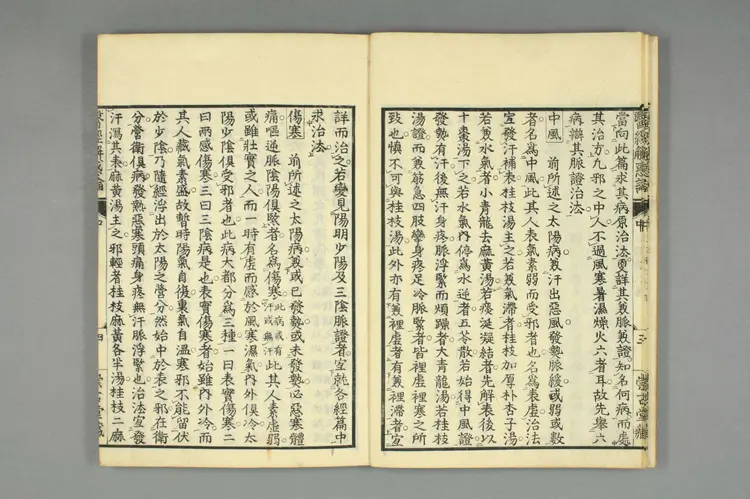 當向此篇求其病原治法更詳其兼脈兼證知名何病而處
其治方凡邪之中人不過風寒暑濕燥火六者耳故先舉六
病辯其脈證治法
中風 前所述之太陽病兼汗出惡風發熱脈緩或弱或數
者名爲中風此其人表氣素弱而受邪者也名爲表虛治法
宜發汗補表桂枝湯主之若兼氣滯者桂枝加厚朴杏子湯
若兼水氣者小青龍去麻黃湯若痰涎凝結者先解表後以
十棗湯下之若水氣內停爲水逆者五苓散若始得中風證
發熱有汗後無汗身疼脈浮緊而煩躁者大青龍湯若桂枝
湯證而兼筋急四肢攣身疼足冷脈緊者皆裡虛裡寒之所
致也愼不可與桂枝湯此外亦有兼裡虛者有兼裡滯者宜
詳而治之若變見陽明少陽及三陰脈證者宜就各經篇中
求治法
傷寒 前所述之太陽病兼或已發熱或未發熱必惡寒體
痛嘔逆脈陰陽俱緊者名爲傷寒此病或有汗或無汗此其人素虛弱
或雖壯實之人而一時有虛而感於風寒濕氣內外俱冷太
陽少陰俱受邪者也此病大都分爲三種一曰表實傷寒二
曰兩感傷寒三曰三陰病是也表實傷寒者始雖內外冷而
其人藏氣素盛故暫時陽氣自復裏氣自溫寒邪不能留伏
於少陰乃隨經浮出於太陽之營分然始中於表之邪在衛
分營衛俱病發熱惡寒頭痛身疼無汗脈浮緊也治法宜發
汗瀉其表麻黃湯主之邪輕者桂枝麻黃各半湯桂枝二麻